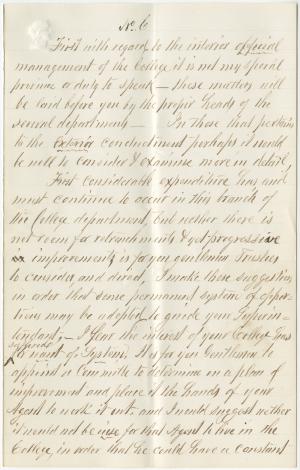 No. 6
First with regard to the interior official
management of the College it is not my special
province or duty to speak — these matters will
be laid before you by the proper heads of the
several departments — In those that pertain
to the Exterior conductment perhaps it would
be well to consider & examine more in detail,
First considerable expenditure has and
must continue to occur in this branch of
the College department, but wether there is
not room for retrenchments & yet progressive
improvements is for you gentlemen Trustees
to consider and direct, I make these suggestions
in order that some permanent system of
may be adopted to guide your Superin-
tendant, — I fear the interest of your College has
suffered
to want of System, It is for you Gentlemen to
appoint a Committee to determine on a plan of
improvement and place it the hands of your
Agent to work it out, and I would suggest wether
it would not be wise for that Agent to live in the
College, in order that he could have a Constant